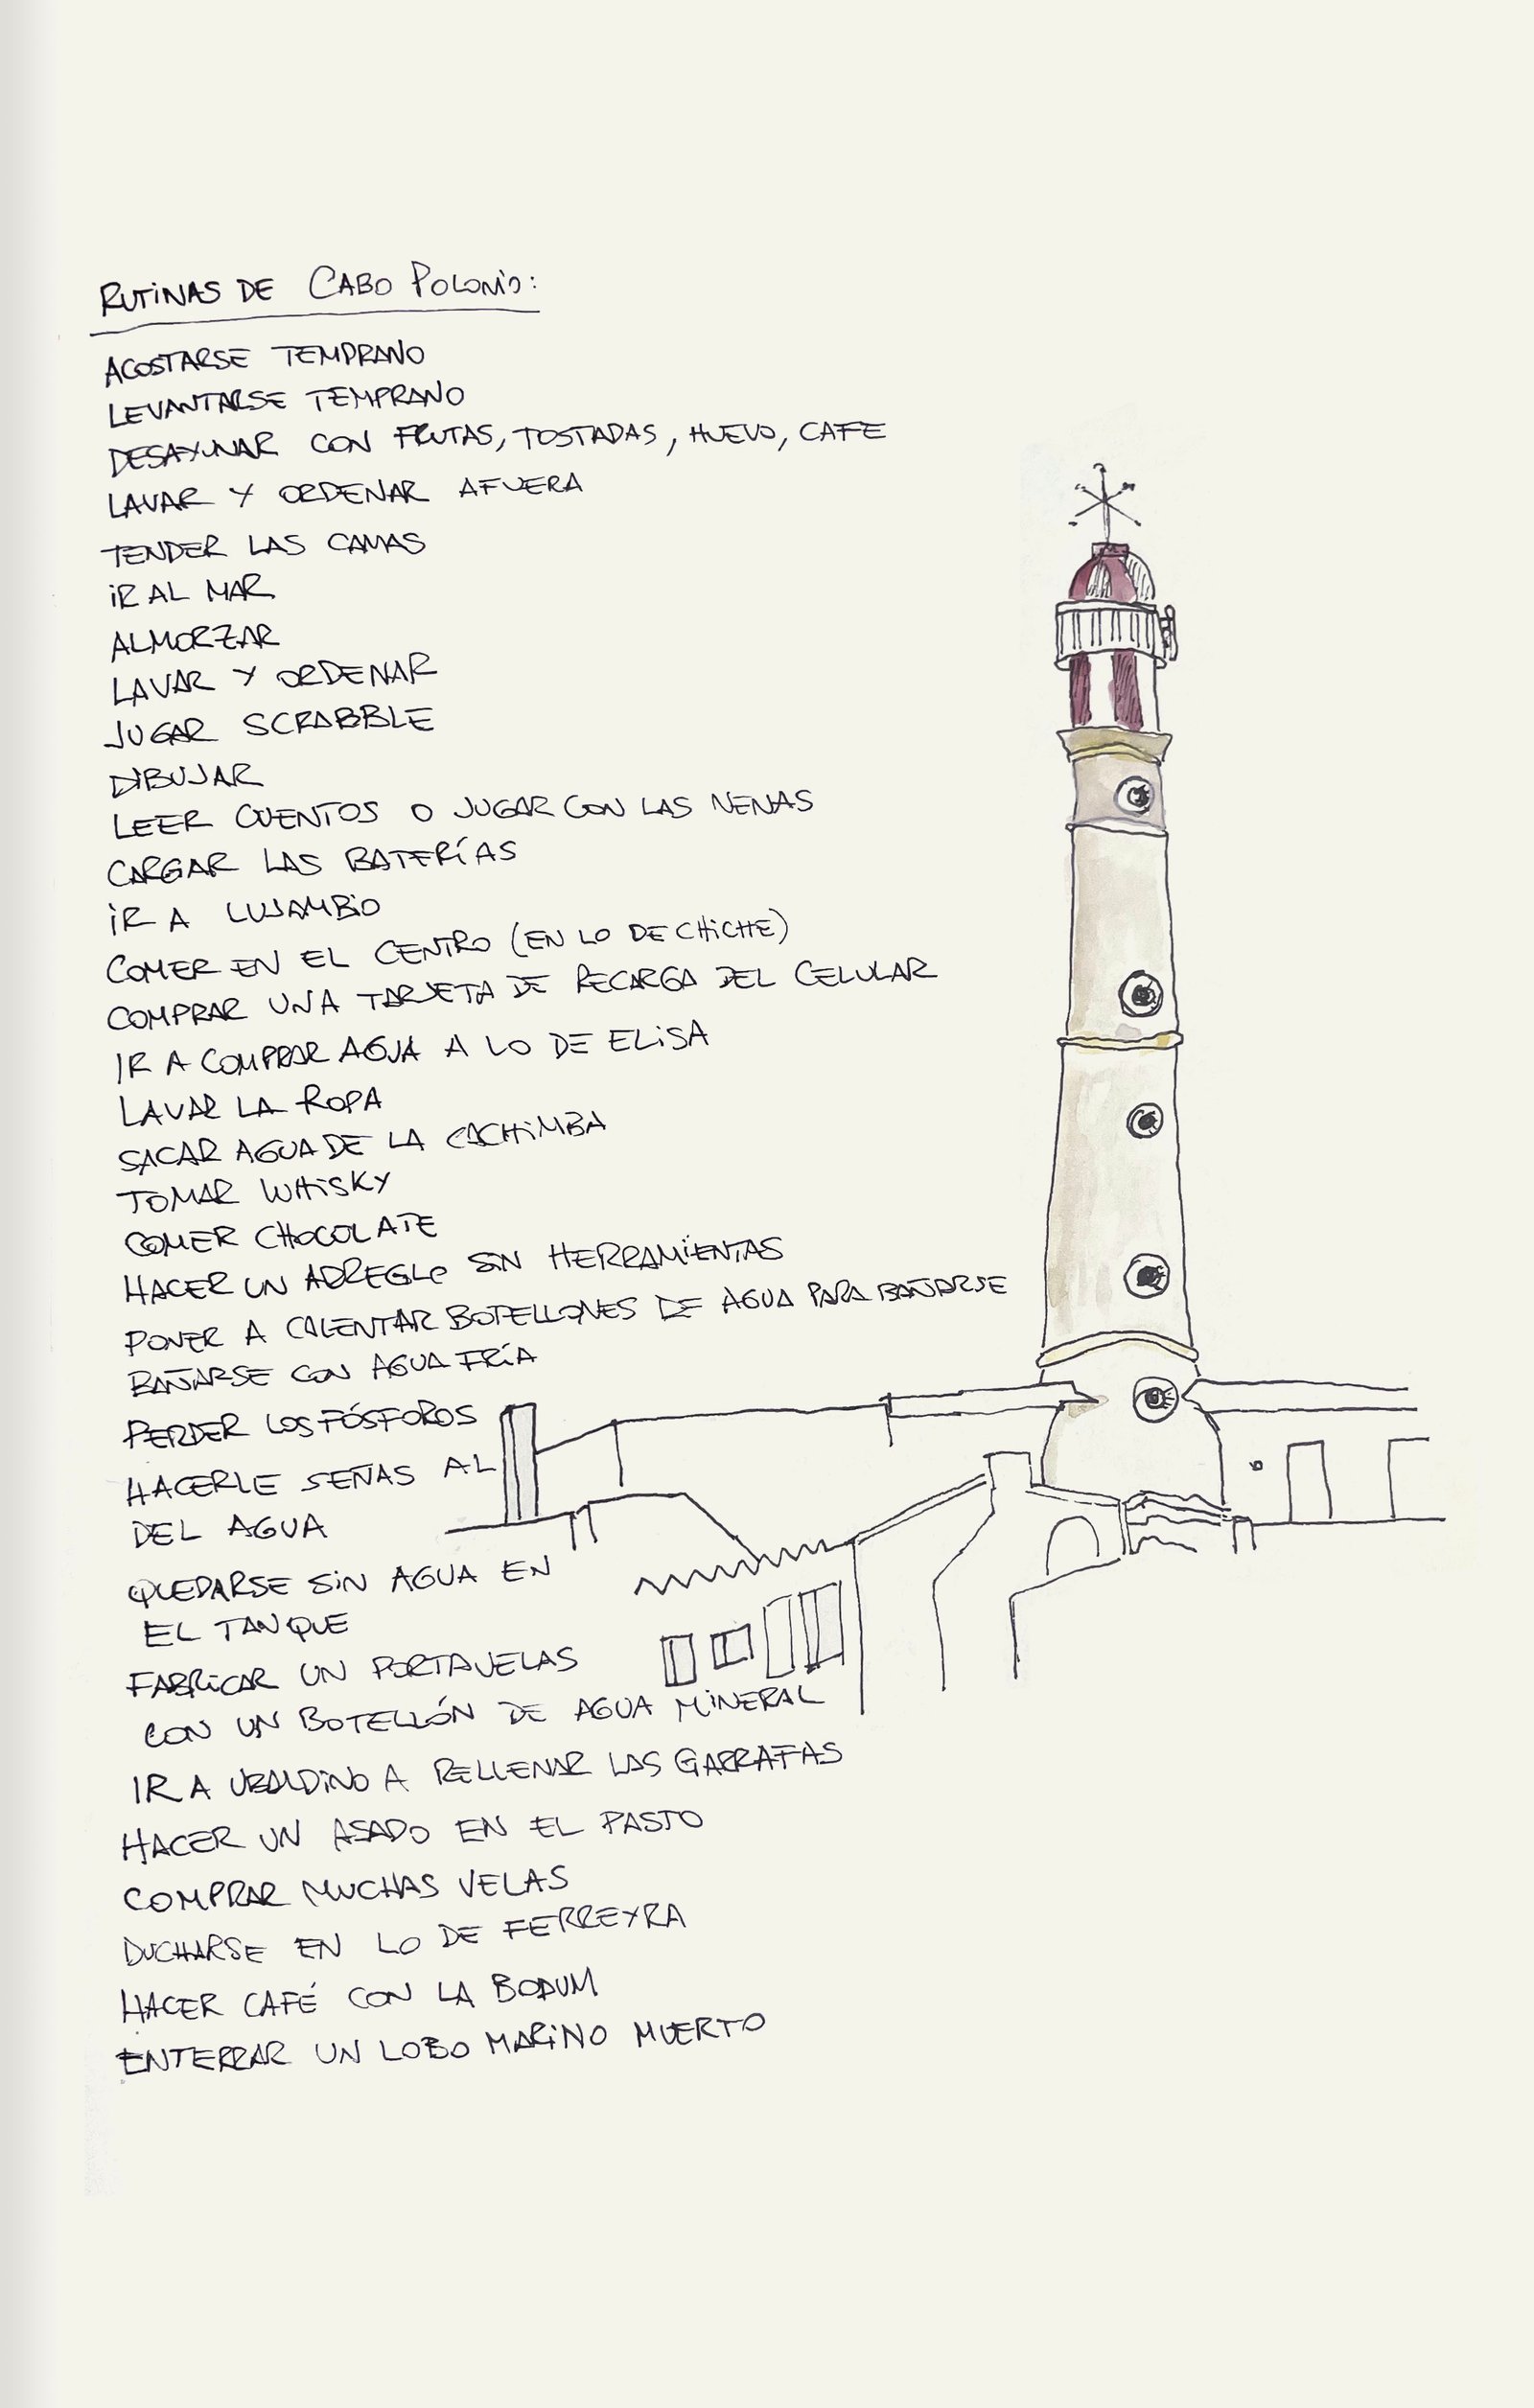 RUTINAS DE CABO POLONIO:
ACOSTARSE TEMPRANO
LEVANTARSE TEMPRANO
DESAYUNAR CON FRUTAS, TOSTADAS, HUEVO, CAFE
LAVAR Y ORDENAR AFUERA
TENDER LAS CAMAS
IR AL MAR
ALMORZAR
LAVAR Y ORDENAR
JUGAR SCRABBLE
DIBUJAR
LEER CUENTOS O JUGAR CON LAS NENAS
CARGAR LAS BATERÍAS
IR A LUJAMBIO
COMER EN EL CENTRO (EN LO DE CHICHE)
COMPRAR UNA TARJETA DE RECARGA DEL CELULAR
IR A COMPRAR AGUA A LO DE ELISA
LAVAR LA ROPA
SACAR AGUA DE LA CACHIMBA
TOMAR WHISKY
COMER CHOCOLATE
HACER UN ARREGLO SIN HERRAMIENTAS
PONER A CALENTAR BOTELLONES DE AGUA PARA BAÑARSE
BAÑARSE CON AGUA FRÍA
PERDER LOS FÓSFOROS
HACERLE SEÑAS AL
DEL AGUA
QUEDARSE SIN AGUA EN
EL TANQUE
FABRICAR UN PORTAVELAS
CON UN BOTELLÓN DE AGUA MINERAL
IR A UBALDINO A RELLENAR LAS GARRAFAS
HACER UN ASADO EN EL PASTO
COMPRAR MUCHAS VELAS
DUCHARSE EN LO DE FERREYRA
HACER CAFÉ CON LA BODUM
ENTERRAR UN LOBO MARINO MUERTO